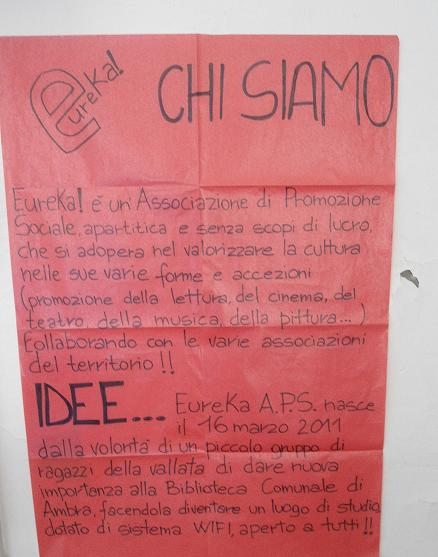 eureka!
CHI SIAMO
EureKa! è un'Associazione di Promozione
Sociale, apartitica e senza scopi di lucro,
che si adopera nel valorizzare la cultura
nelle sue varie forme e accezioni
(promozione della lettura, del cinema, del
teatro, della musica, della pittura...)
Collaborando con le varie associazioni
del territorio!!
IDEE... EureKa A.P.S. nasce
il 16 marzo 2011
dalla volontà di un piccolo gruppo di
ragazzi della vallata di dare nuova
importanza alla Biblioteca Comunale di
Ambra, facendola diventare un luogo di studio
dotato di sistema WIFI, aperto a tutti!!